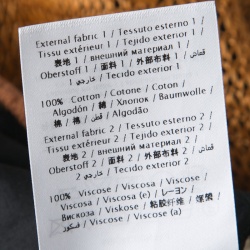 External fabric 1 / Tessuto esterno 1 /
Tissu extérieur 1 / Tejido exterior 1
表地 1 / внешний материал 1 /
Oberstoff 1 / 面料 1 / 外部布料 1 / قماش
خارجي 1 / Tecido exterior 1
100% Cotton / Cotone / Coton /
Algodón / 綿 / Хлопок / Baumwolle /
棉 / 棉 / قطن / Algodão
External fabric 2 / Tessuto esterno 2 /
Tissu extérieur 2 / Tejido exterior 2 /
表地 2 / внешний материал 2 /
Oberstoff 2 / 面料 2 / 外部布料 2 / قماش
خارجي 2 / Tecido exterior 2
100% Viscose / Viscosa / Viscose /
Viscosa / Viscosa (e) / レーヨン /
Вискоза / Viskose / 粘胶纤维 / 嫘縈 /
فسكوز / Viscose / Viscose (a)